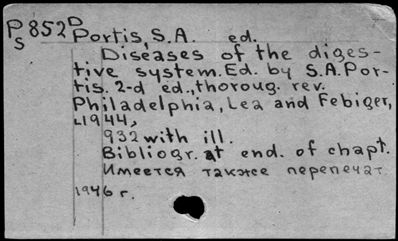 P D
S 852 Portis, S.A. ed.
Diseases of the diges-
tive system. Ed. by S.A. Por-
tis. 2-d ed., thoroug. rev.
Philadelphia, Lea and Febiger,
1944,
932 with ill.
Bibliogr. at end. of chapt.
Имеется также перепечат.
1946 г.